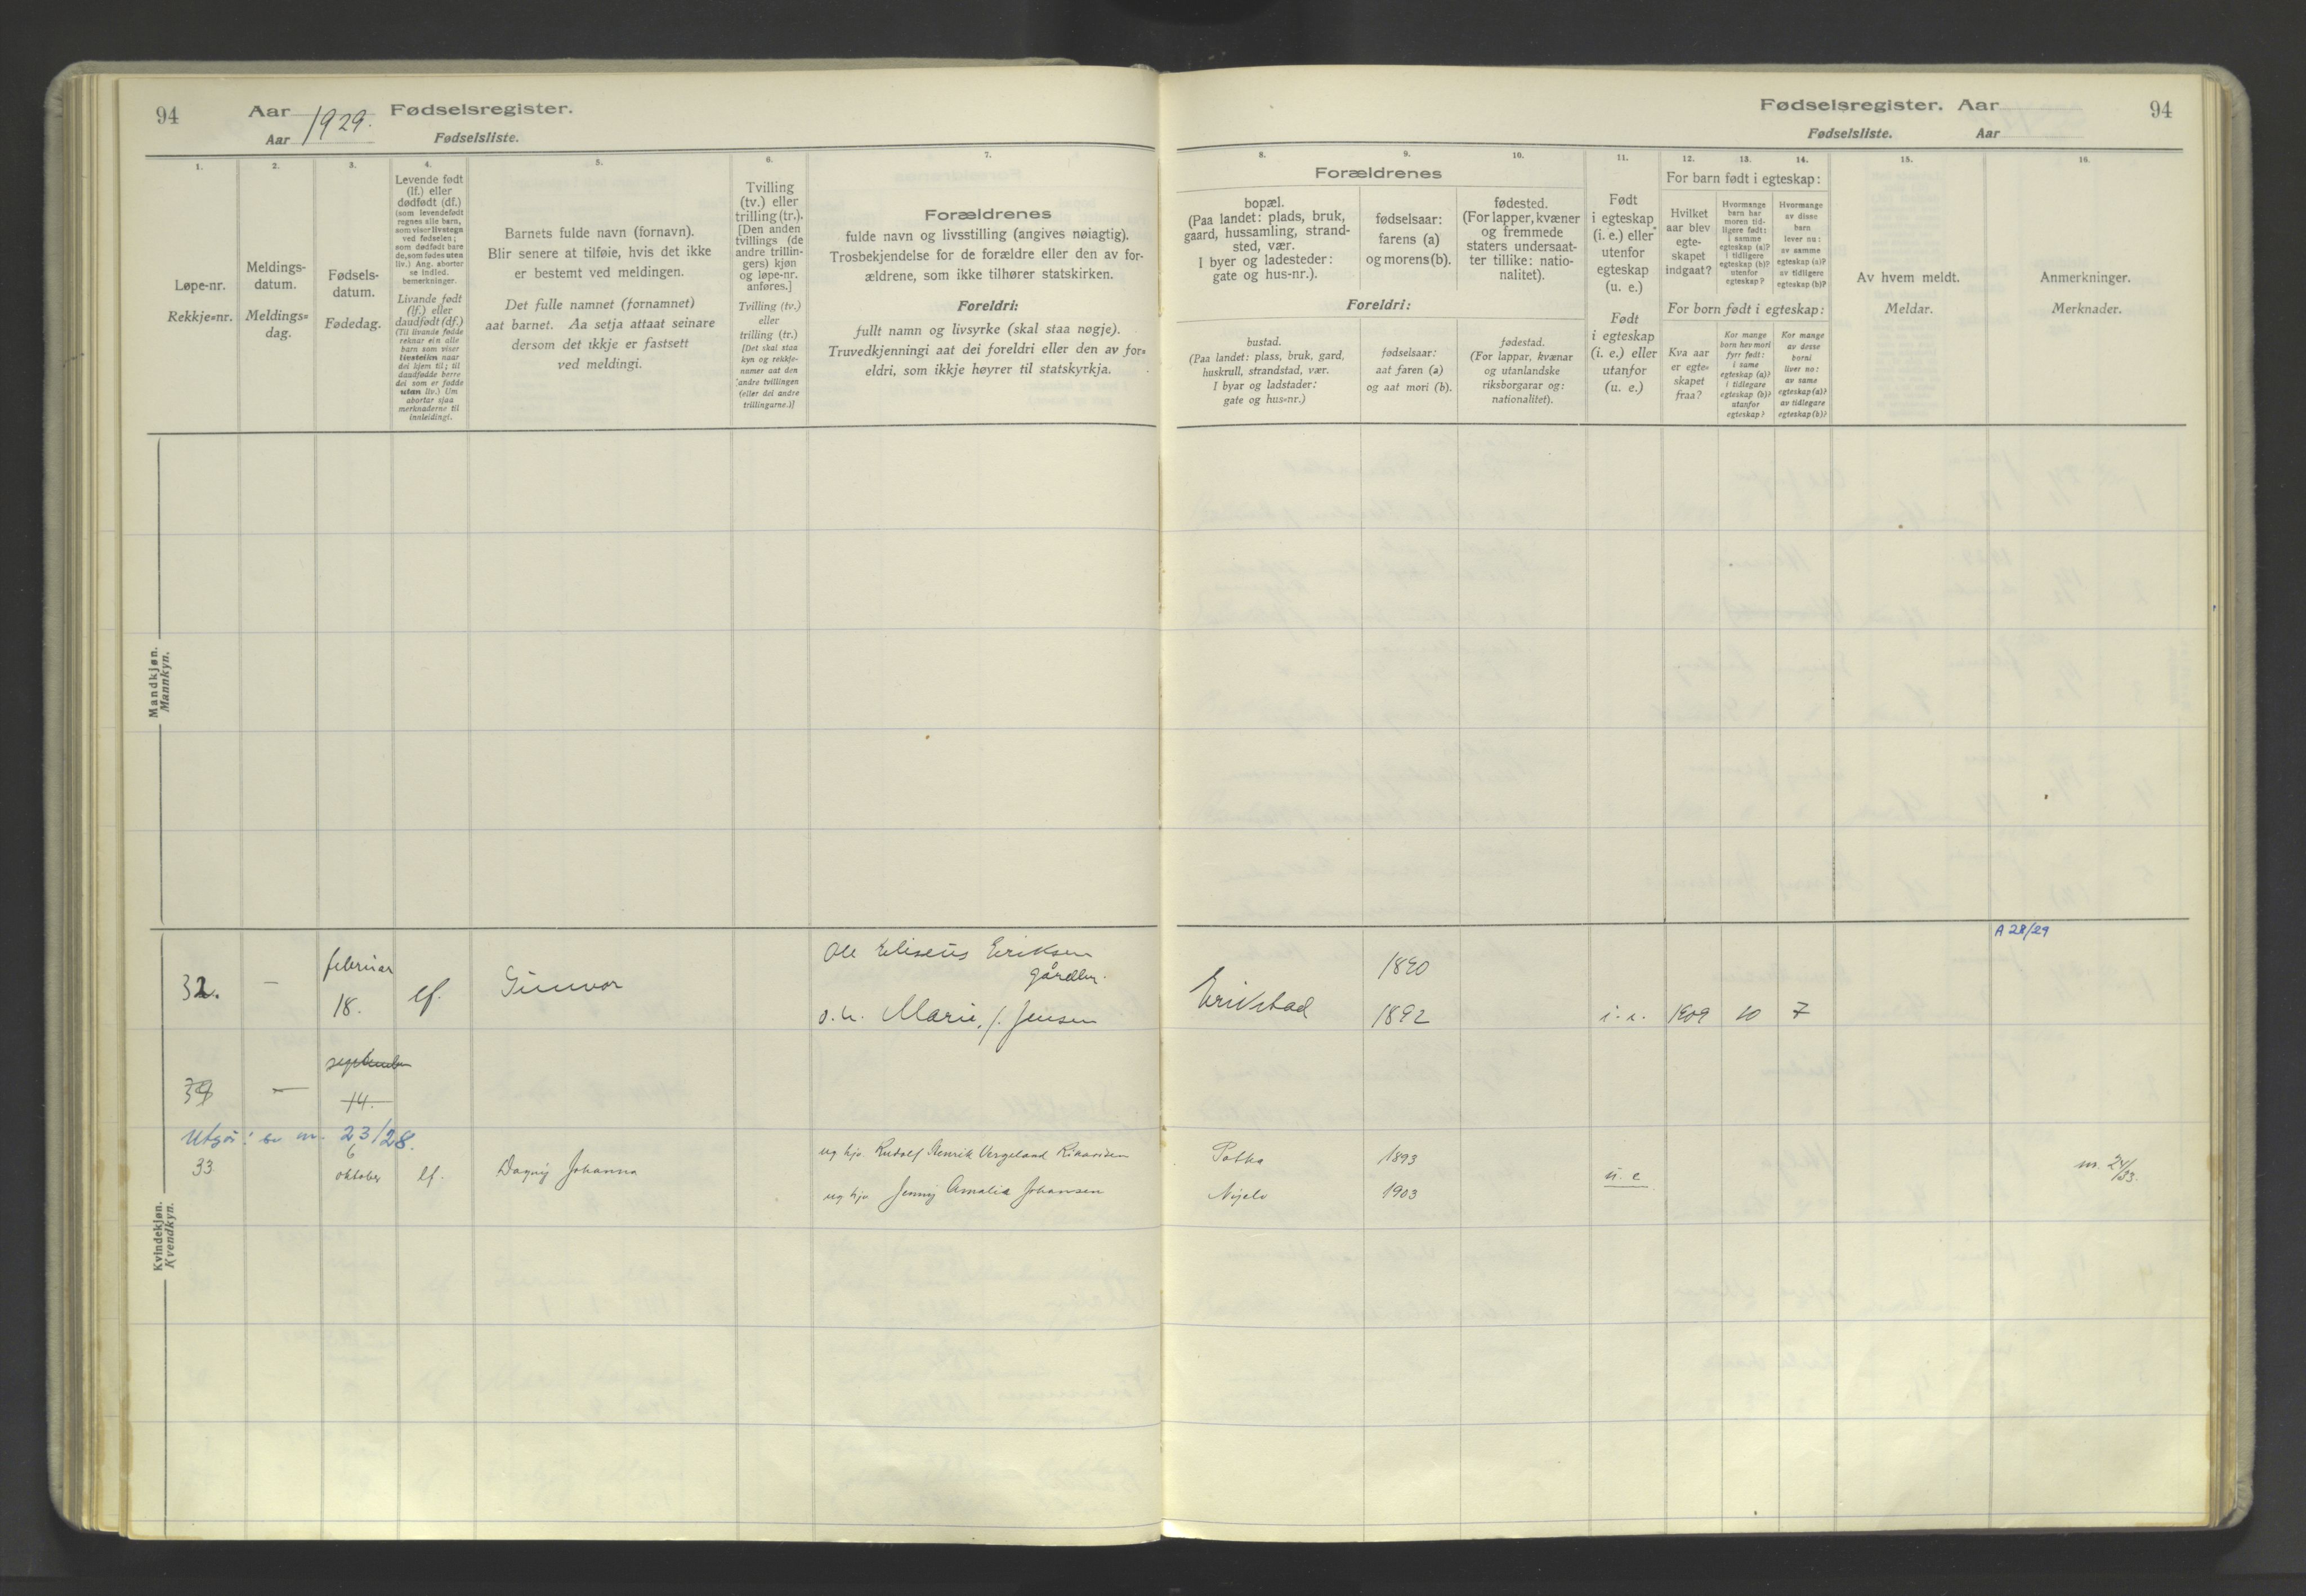 94
Aar 1929. Fødselsregister.
Aar Fødselsliste.
Fødselsregister. Aar
Fødselsliste. Aar
94
1.
Løpe-nr.
Rekkje=nr.
2.
Meldings-
datum.
Meldings=
dag.
3.
Fødsels-
datum.
Fødedag.
4.
Levende født
(lf.) eller
dødfødt (df.)
(som levendefødt
regnes alle barn,
som viser livstegn
ved fødselen;
som dødfødt bare
de, som fødes uten
liv.) Ang. aborter
se indled.
bemerkninger.
Livande født
(lf.) eller
daudfødt (df.)
(Til livande fødde
reknar ein alle
barn som viser
livsteikn naar
dei kjem til; til
daudfødde berre
dei som er fødde
utan liv.) Um
abortar sjaa
merknaderne til
innleidingi.
5.
Barnets fulde navn (fornavn).
Blir senere at tilføie, hvis det ikke
er bestemt ved meldingen.
Det fulle namnet (fornamnet)
aat barnet. Aa setja attaat seinare
dersom det ikkje er fastsett
ved meldingi.
6.
Tvilling
(tv.) eller
trilling (tr.).
[Den anden
tvillings (de
andre trillin-
gers) kjøn
og løpe-nr.
anføres.]
Tvilling (tv.)
eller
trilling (tr.)
[Det skal staa
kyn og rekkje-
numer aat den
andre tvillingen
(eller dei andre
trillingarne.)]
7.
Forældrenes
fulde navn og livsstilling (angives nøiagtig).
Trosbekjendelse for de forældre eller den av for-
ældrene, som ikke tilhører statskirken.
Foreldri:
fullt namn og livsyrke (skal staa nøgje).
Truvedkjenningi aat dei foreldri eller den av for=
eldri, som ikkje høyrer til statskyrkja.
Forældrenes
8.
bopæl.
(Paa landet: plads, bruk,
gaard, hussamling, strand-
sted, vær.
I byer og ladesteder:
gate og hus-nr.).
9.
fødselsaar:
farens (a)
og morens (b).
10.
fødested.
(For lapper, kvæner
og fremmede
staters undersaat-
ter tillike: natio-
nalitet).
Foreldri:
bustad.
(Paa landet: plass, bruk, gard,
huskrull, strandstad, vær.
I byar og ladstader:
gate og hus=nr.)
fødselsaar:
aat faren (a)
og aat mori (b).
fødestad.
(For lappar, kvænar
og utanlandske
riksborgarar og:
nationalitet).
11.
Født
i egteskap
(i. e.) eller
utenfor
egteskap
(u. e.)
Født
i egteskap
(i. e.) eller
utanfor
(u. e.)
12. 13. 14.
For barn født i egteskap:
Hvilket
aar blev
egte-
skapet
indgaat?
Hvormange
barn har
moren tid-
ligere født:
i samme
egteskap (a)?
i tidligere
egteskap (b)?
utenfor
egteskap?
Hvormange
av disse
barn
lever nu:
av samme
egteskap (a)?
av tidligere
egteskap (b)?
For born født i egteskap:
Kva aar
er egte=
skapet
fraa?
Kor mange
born hev mori
fyrr født:
i same
egteskap (a)?
i tidlegare
egteskap (b)?
utanfor
egteskap?
Kor mange
av desse
borni
liver no:
av same
egteskap (a)?
av tidlegare
egteskap (b)?
15.
Av hvem meldt.
Meldar.
16.
Anmerkninger.
Merknader.
Mandkjøn.
Mannkyn.
Kvindekjøn.
Kvendkyn.
A 28/29
32. — februar 18. lf. Gunvor
Ole Eliseus Eriksen
gårdbr.
o. h. Marie, f. Jensen
Erikstad 1890
1892 i. e. 1909 10 7
34 — september 14.
Utgår! se nr. 23/28.
33 6 oktober lf. Dagny Johanna
ug hjv. Rudolf Henrik Vergeland Rikardsen
ug hjv Jenny Amalie Johansen
Potka 1893
Nyelv 1903
u. e
nr. 24/33.